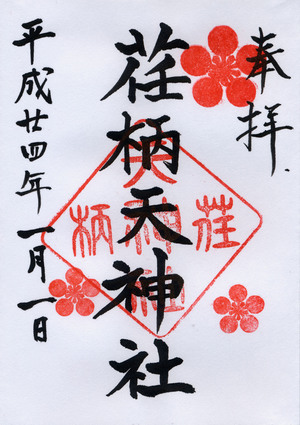 奉拝
荏柄天神社
平成廿四年一月一日
荏柄天神社